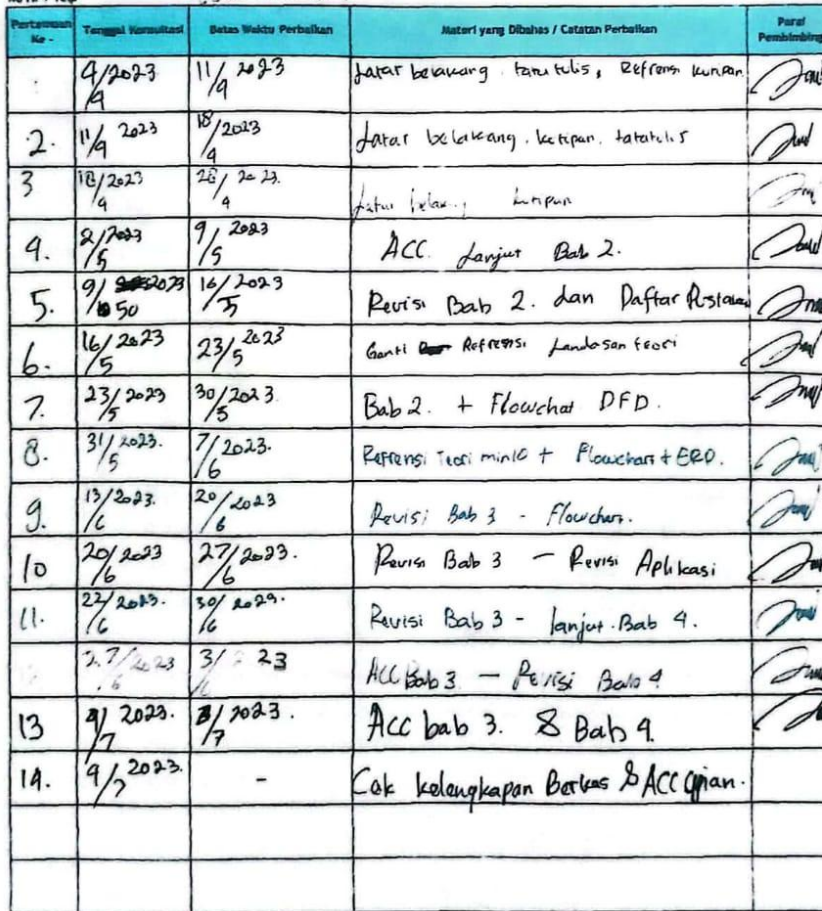 Pertemuan Ke - Tanggal Konsultasi Batas Waktu Perbaikan Materi yang Dibahas / Catatan Perbaikan Paraf Pembimbing
4/4 2023 11/4 2023 Latar belakang. tata tulis, Refrensi kutipan
2. 11/4 2023 18/4 2023 Latar belakang. ketipan. tatatulis
3 18/4 2023 2023. Latar belakang kutipan
4. 2/5 2023 9/5 2023 ACC Lanjut Bab 2.
5. 9/ 2023 50 16/5 2023 Revisi Bab 2. dan Daftar Pustaka
6. 16/5 2023 23/5 2023 Ganti Refrensi Landasan teori
7. 23/5 2023 30/5 2023. Bab 2. + Flowchat DFD.
8. 31/5 2023. 7/6 2023. Refrensi Teori min 10 + Flowchart + ERD.
9. 13/6 2023. 20/6 2023 Revisi Bab 3 - Flowchart.
10 20/6 2023 27/6 2023. Revisi Bab 3 - Revisi Aplikasi
11. 22/6 2023. 30/6 2023. Revisi Bab 3 - lanjut Bab 4.
27/6 2023 3/ 23 ACC Bab 3 - Revisi Bab 4
13 2023. /7 2023. Acc bab 3. & Bab 4.
14. 9/7 2023. - Cek kelengkapan Berkas & ACC Ujian.